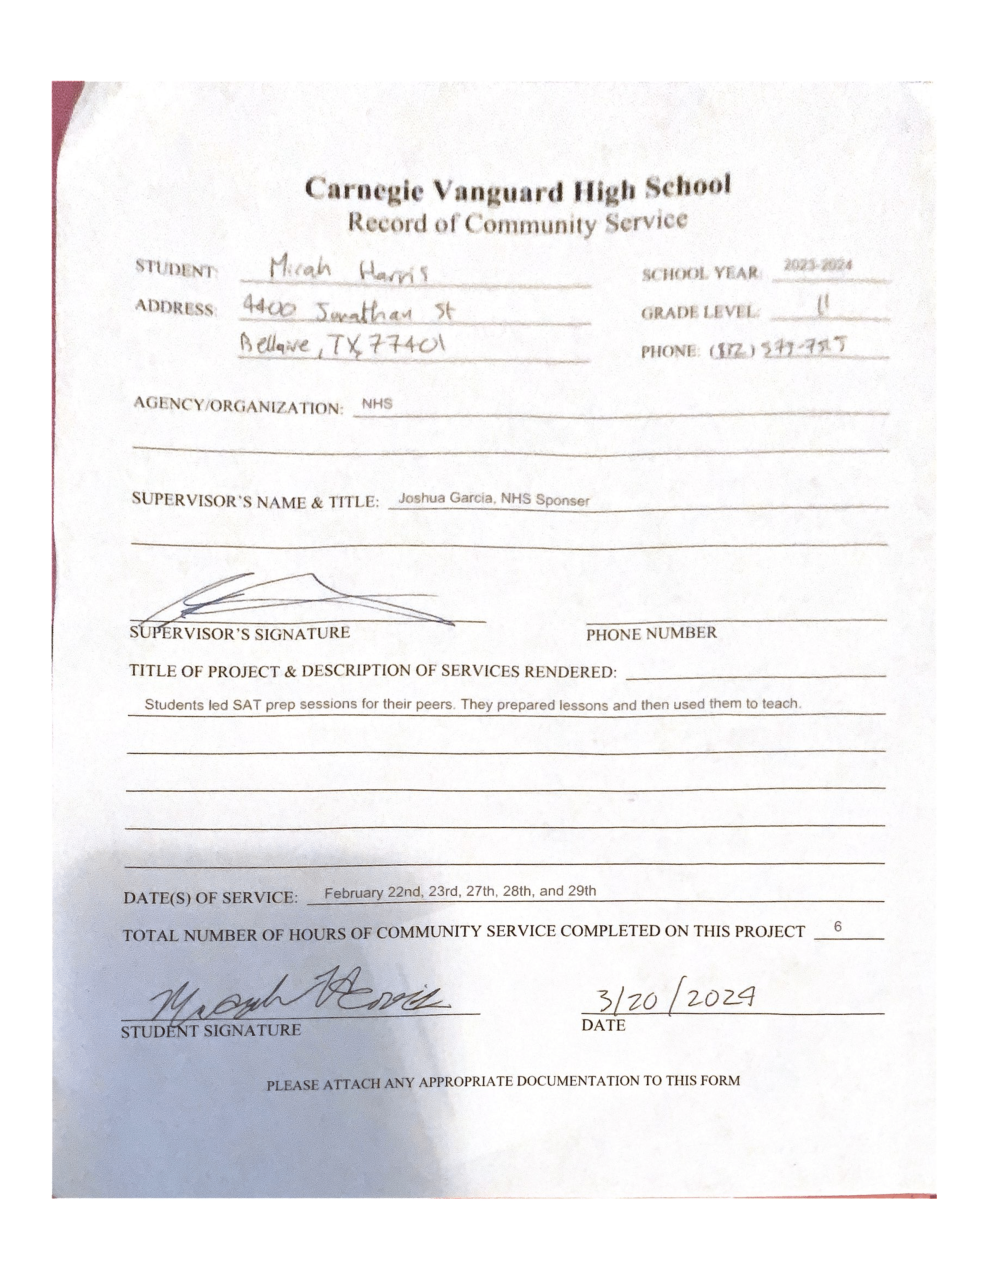 Carnegie Vanguard High School
Record of Community Service
STUDENT: Micah Harris
SCHOOL YEAR: 2023-2024
ADDRESS: 4400 Jonathan St
GRADE LEVEL: 11
Bellaire, TX, 77401
PHONE:
AGENCY/ORGANIZATION: NHS
SUPERVISOR'S NAME & TITLE: Joshua Garcia, NHS Sponser
SUPERVISOR'S SIGNATURE
PHONE NUMBER
TITLE OF PROJECT & DESCRIPTION OF SERVICES RENDERED:
Students led SAT prep sessions for their peers. They prepared lessons and then used them to teach.
DATE(S) OF SERVICE: February 22nd, 23rd, 27th, 28th, and 29th
TOTAL NUMBER OF HOURS OF COMMUNITY SERVICE COMPLETED ON THIS PROJECT 6
Micah Harris 3/20/2024
STUDENT SIGNATURE DATE
PLEASE ATTACH ANY APPROPRIATE DOCUMENTATION TO THIS FORM